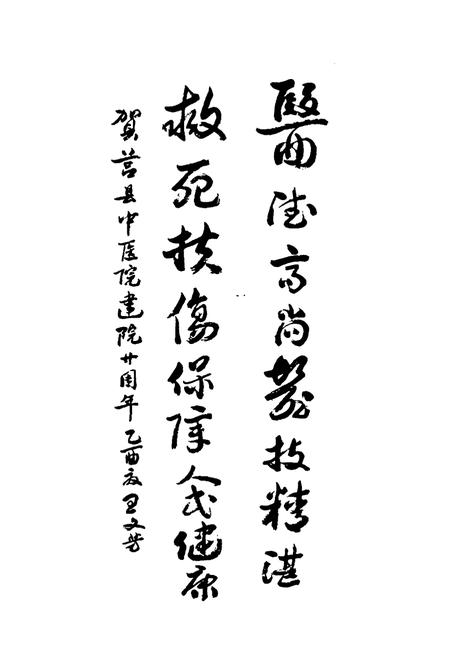 醫德高尚藝技精湛
救死扶傷保障人民健康
賀莒县中医院建院廿周年 乙酉夏王文芳